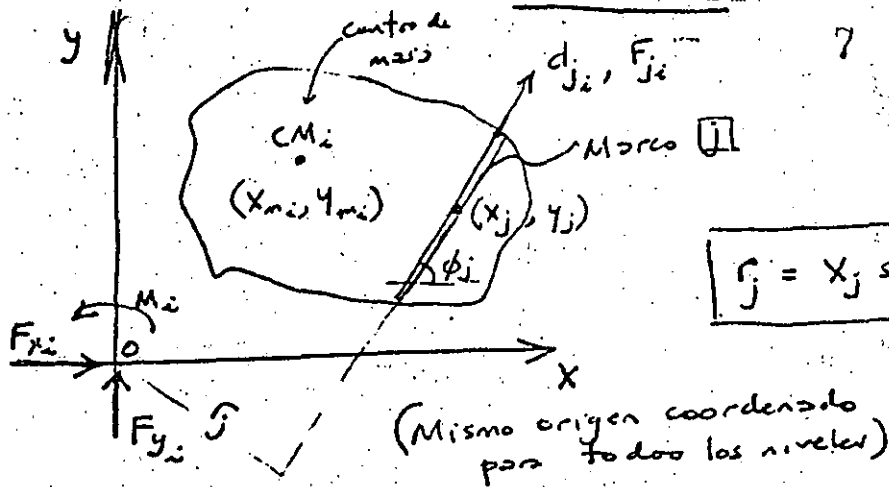 y
centro de
masa
d_ji, F_ji
7
CM_i
Marco [j]
(x_mi, y_mi)
(x_j, y_j)
φ_j
r_j = x_j s
M_i
F_xi
0
x
F_yi
(Mismo origen coordenado
para todos los niveles)